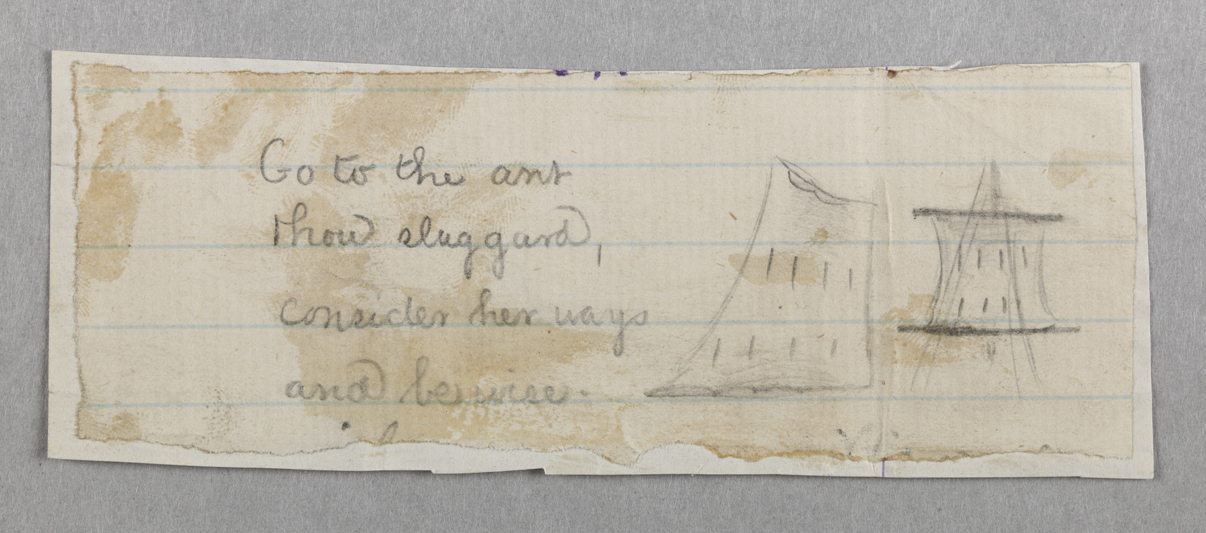 Go to the ant
thou sluggard,
consider her ways
and be wise.